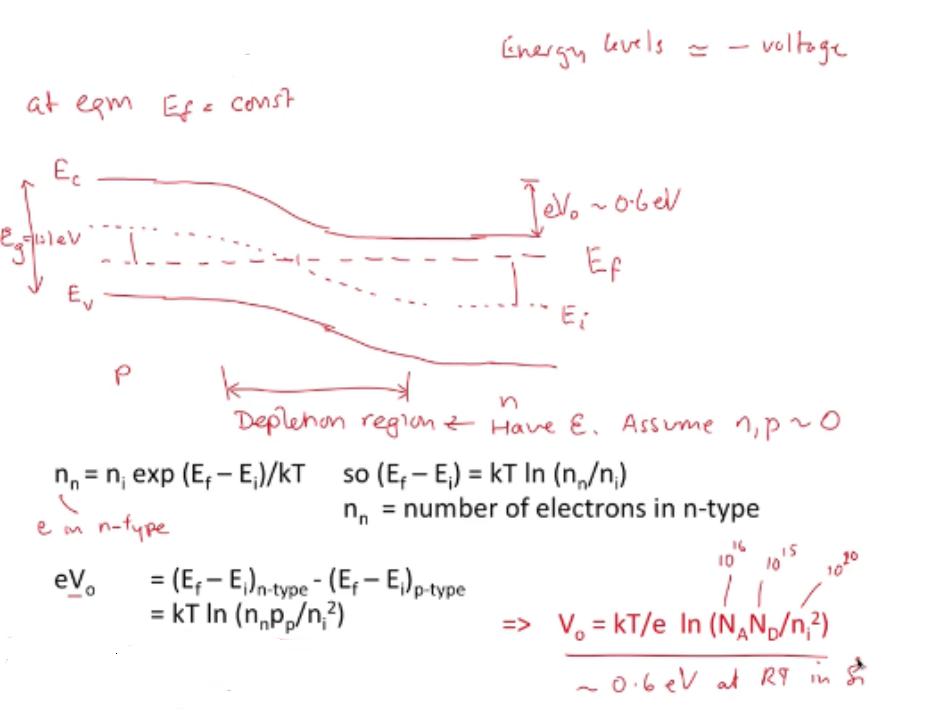 Energy levels ≃ – voltage
at eqm Ef = const
Ec
eV₀ ~ 0.6eV
Eg=1.1eV
Ef
Ev
Ei
p
n
Depletion region ← Have ε. Assume n,p ~ 0
nₙ = nᵢ exp (E_f – Eᵢ)/kT so (E_f – Eᵢ) = kT ln (nₙ/nᵢ)
e in n-type
nₙ = number of electrons in n-type
10¹⁶ 10¹⁵ 10²⁰
eV₀ = (E_f – Eᵢ)n-type - (E_f – Eᵢ)p-type
= kT ln (nₙpₚ/nᵢ²)
=> V₀ = kT/e ln (N_A N_D/nᵢ²)
~ 0.6 eV at RT in Si